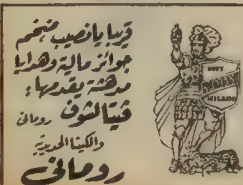 قريبا يانصيب ضخم
جوائز مالية وهدايا
مدهشة يقدمها:
فيتالشوف روماني
والكينا الحديدية
روماني
DOTT
MILANO